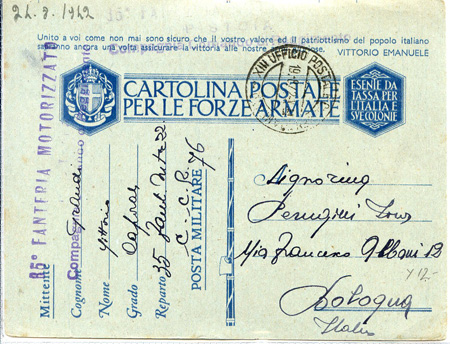 22.8.1942
Unito a voi come non mai sono sicuro che il vostro valore ed il patriottismo del popolo italiano
sapranno ancora una volta assicurare la vittoria alle nostre
VITTORIO EMANUELE
XIII UFFICIO POSTALE
CARTOLINA POSTALE
PER LE FORZE ARMATE
ESENTE DA
TASSA PER
L'ITALIA E
SVE COLONIE
35° FANTERIA MOTORIZZATO
Compagnia
Mittente
Cognome
Nome Vittorio
Grado Caporal
Reparto 35
C.C.R.
POSTA MILITARE 76
Signorina
Perugini
Via Francesco Albani 12
Y 12-
Bologna
Italia